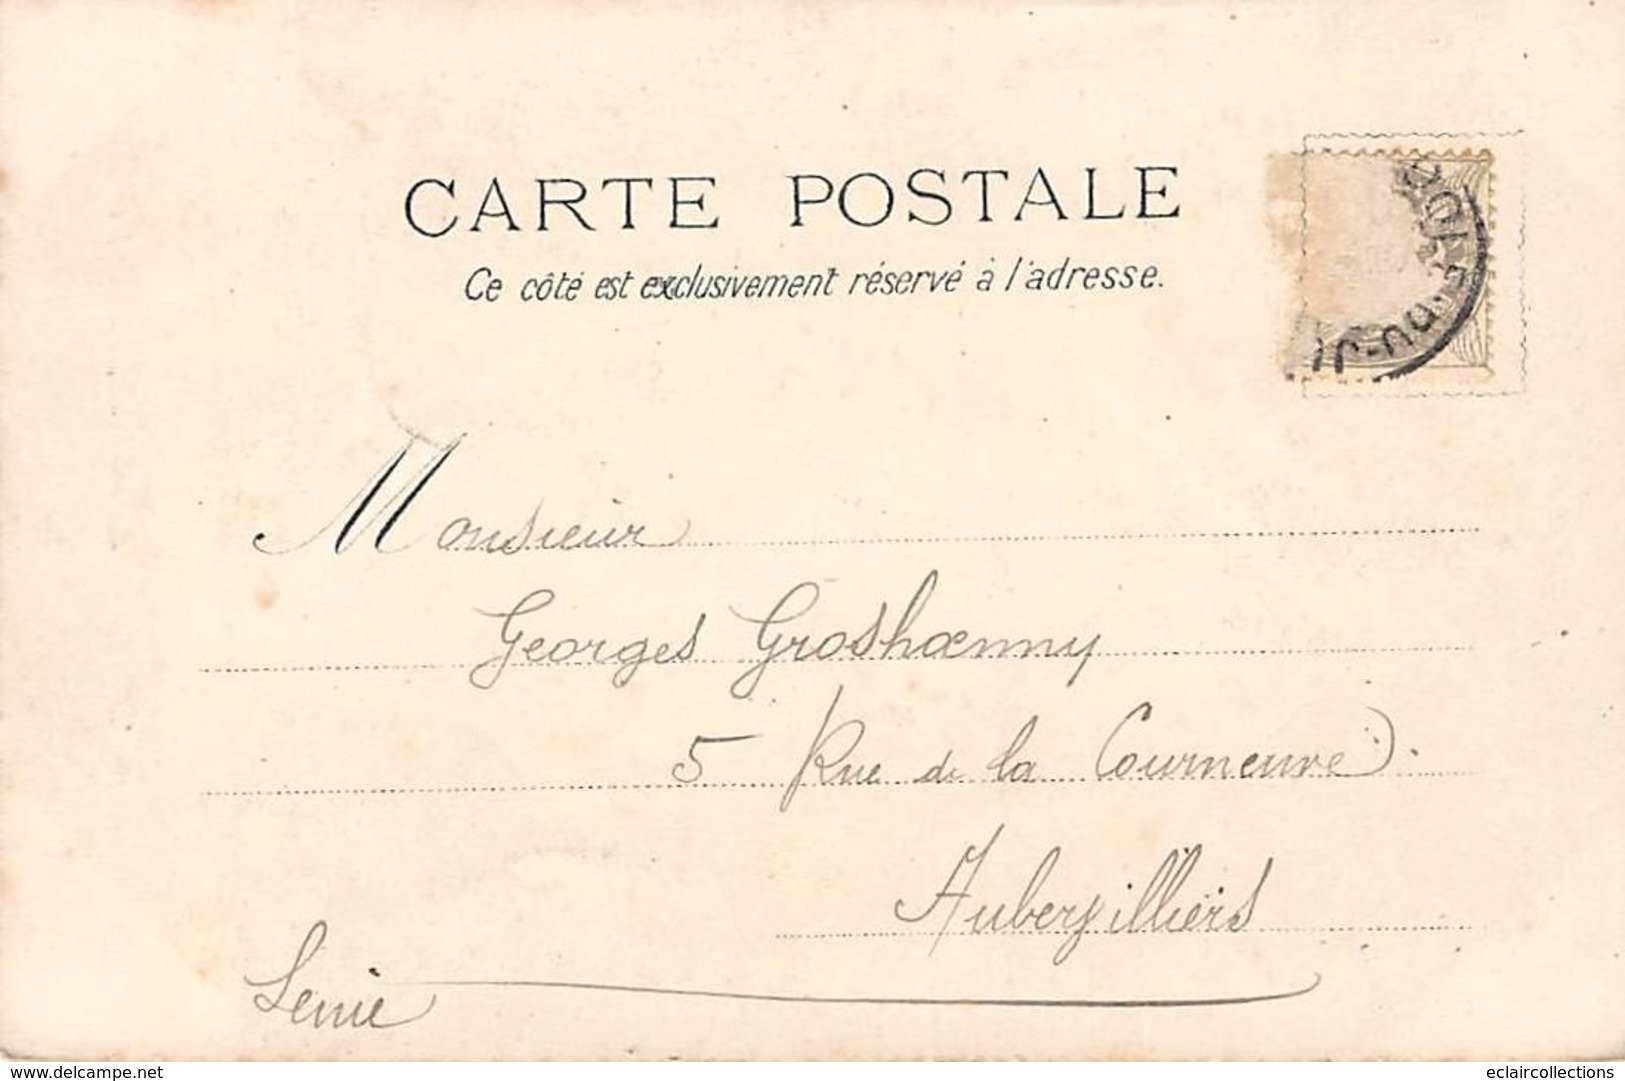 CARTE POSTALE
Ce côté est exclusivement réservé à l'adresse.
Monsieur
Georges Groshænny
5 Rue de la Courneuve.
Aubervilliers
Seine
www.delcampe.net
eclaircollections